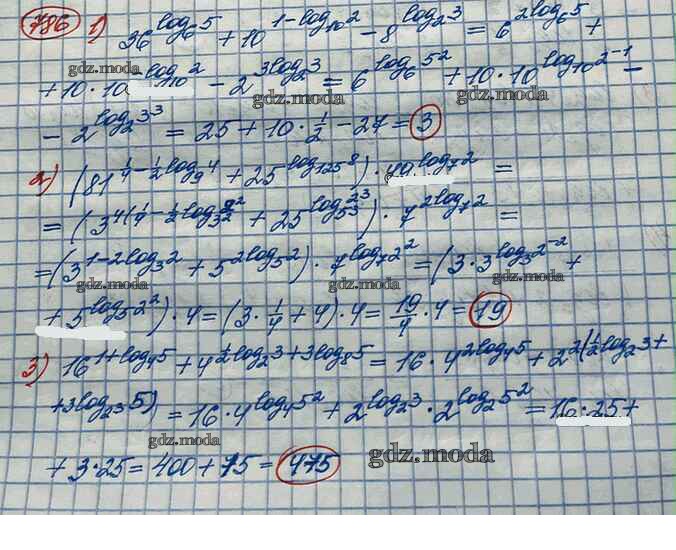 786 1) 36^{log_6 5} + 10^{1-log_{10} 2} - 8^{log_2 3} = 6^{2log_6 5} +
gdz.moda
+ 10 · 10^{-log_{10} 2} - 2^{3log_2 3} = 6^{log_6 5^2} + 10 · 10^{log_{10} 2^{-1}} -
gdz.moda gdz.moda
- 2^{log_2 3^3} = 25 + 10 · 1/2 - 27 = 3
2) (81^{1/4 - 1/2 log_9 4} + 25^{log_{125} 8}) · 49^{log_7 2} =
gdz.moda
= (3^{4(1/4 - 1/2 log_{3^2} 2^2} + 25^{log_{5^3} 2^3}) · 7^{2log_7 2} =
= (3^{1-2log_3 2} + 5^{2log_5 2}) · 7^{log_7 2^2} = (3 · 3^{log_3 2^{-2}} +
gdz.moda gdz.moda
+ 5^{log_5 2^2}) · 4 = (3 · 1/4 + 4) · 4 = 19/4 · 4 = 19
3) 16^{1+log_4 5} + 4^{1/2 log_2 3 + 3log_8 5} = 16 · 4^{2log_4 5} + 2^{2(1/2 log_2 3 +
+ 3log_{2^3} 5)} = 16 · 4^{log_4 5^2} + 2^{log_2 3} · 2^{log_2 5^2} = 16 · 25 +
gdz.moda
+ 3 · 25 = 400 + 75 = 475
gdz.moda